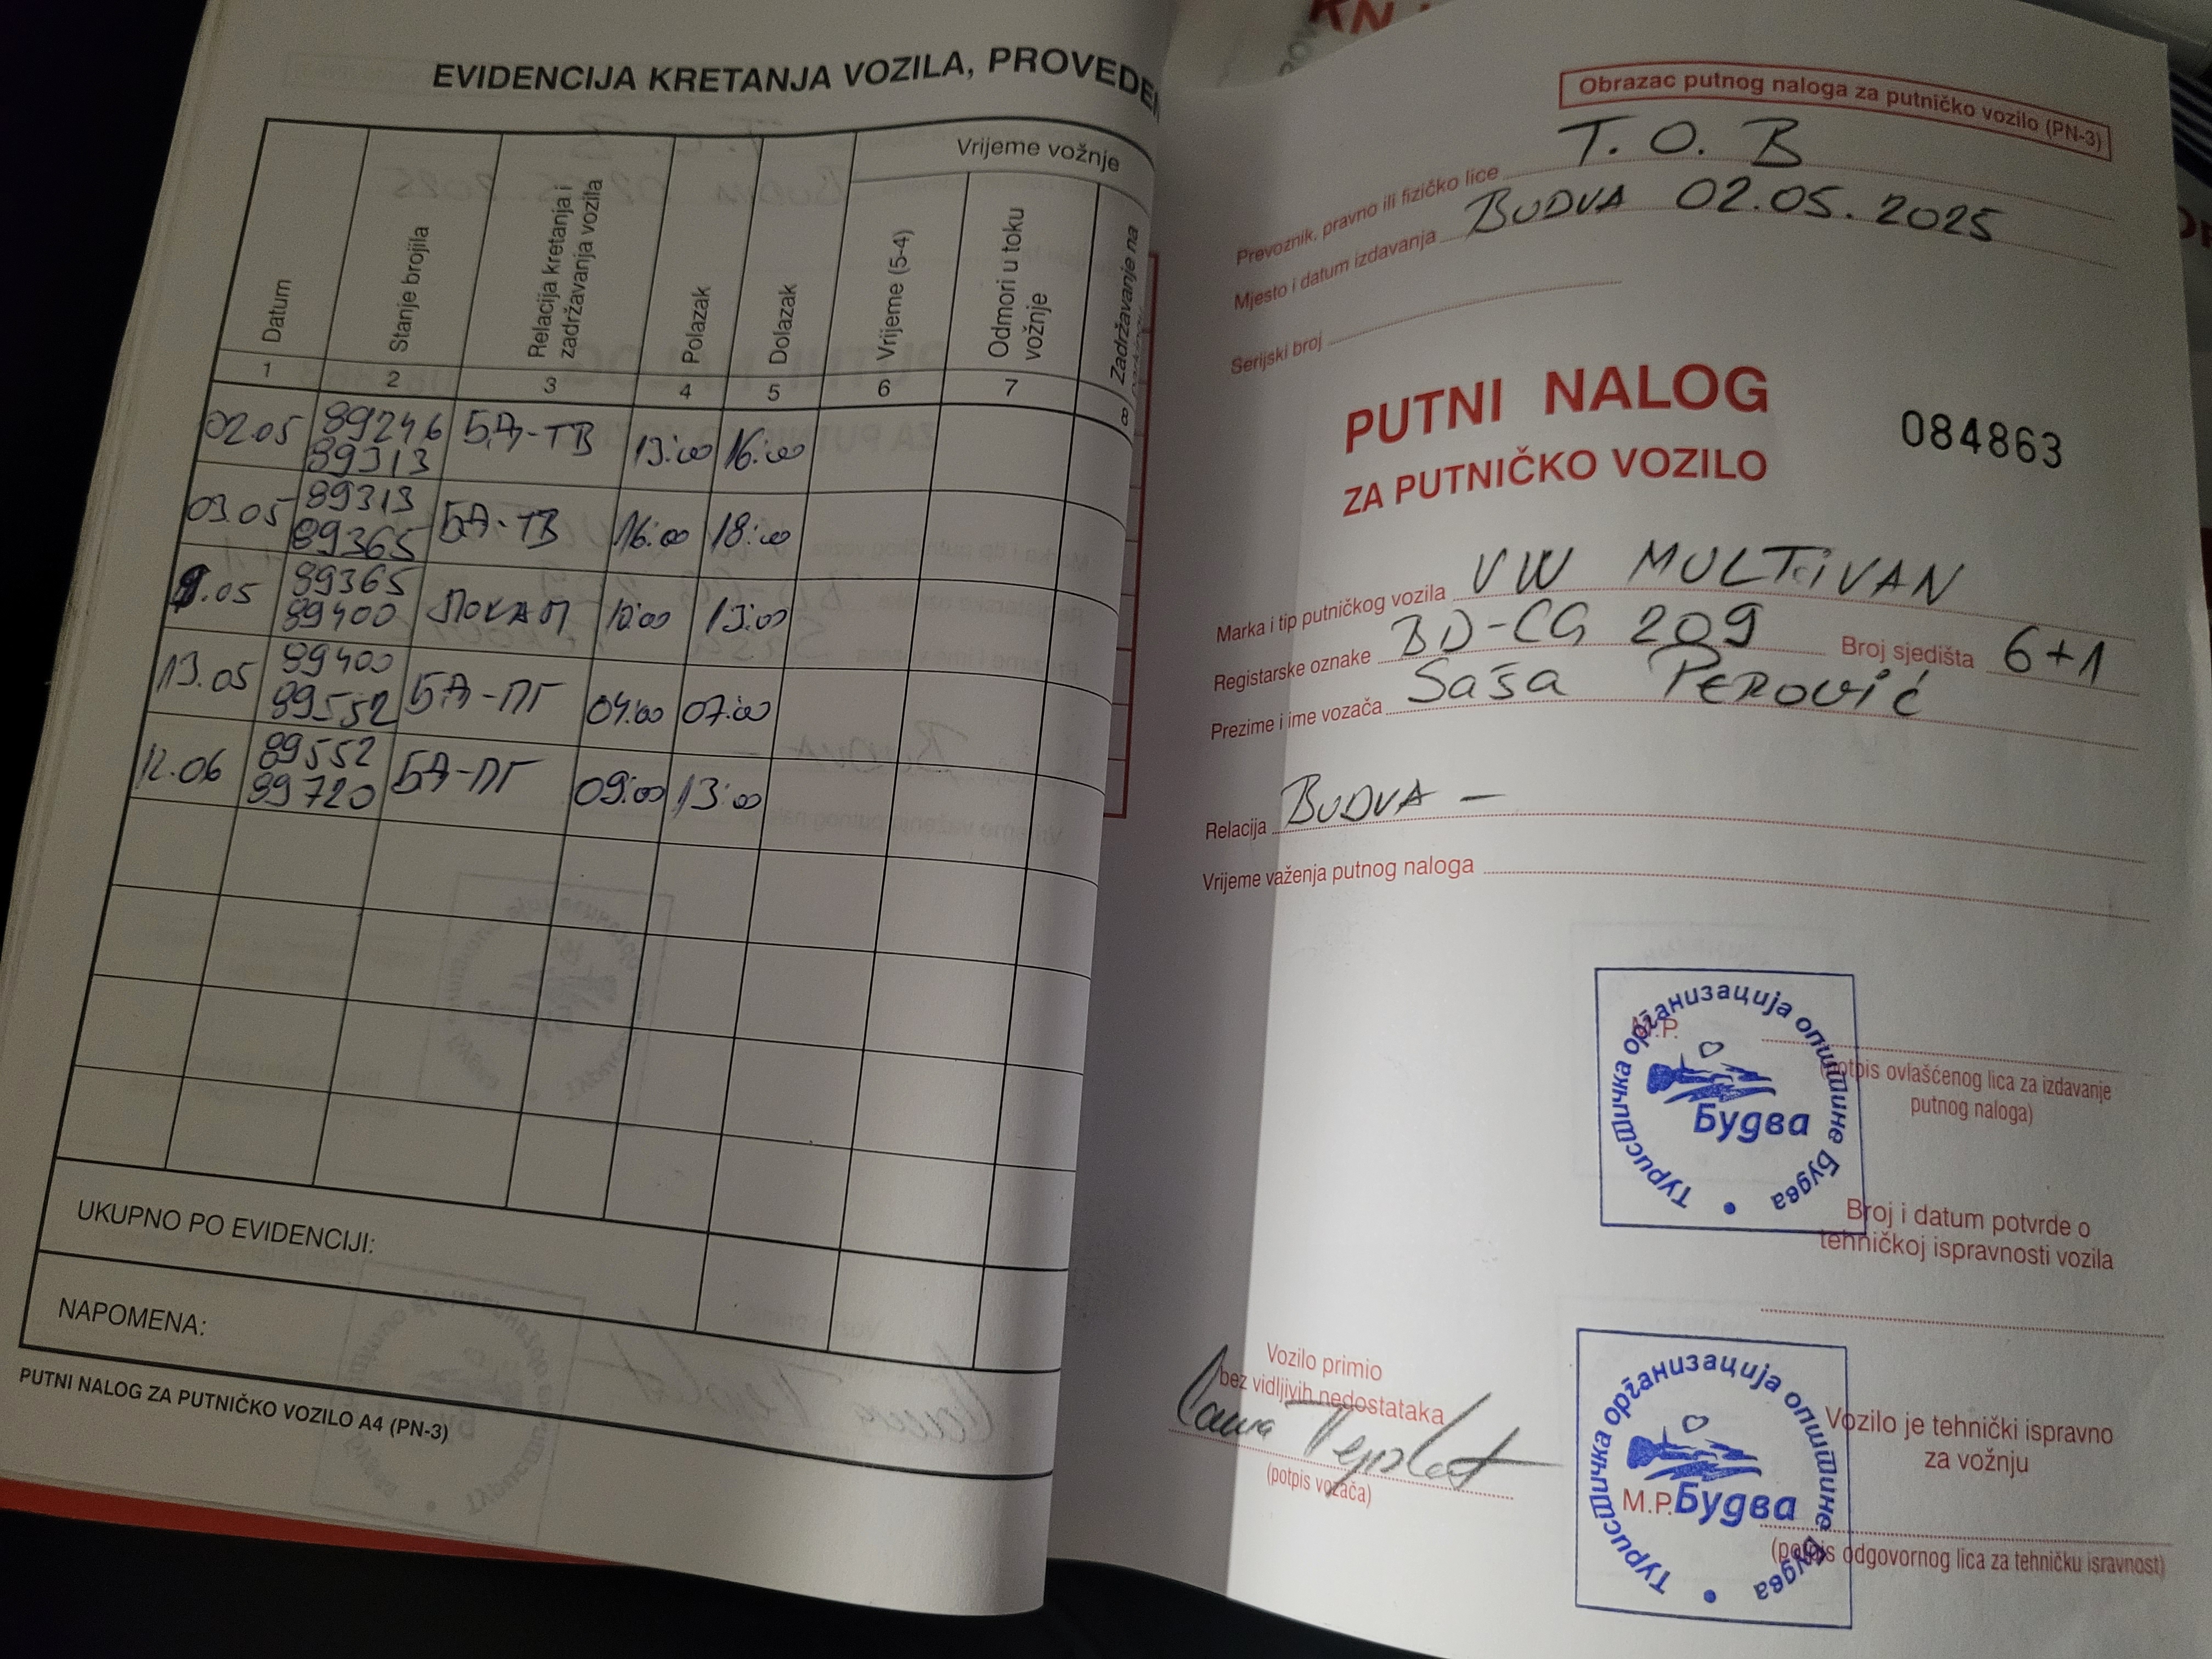 EVIDENCIJA KRETANJA VOZILA, PROVEDEN
Datum
Stanje brojila
Relacija kretanja i
zadržavanja vozila
Polazak
Dolazak
Vrijeme vožnje
Vrijeme (5-4)
Odmori u toku
vožnje
Zadržavanje na
1 2 3 4 5 6 7 8
02.05 89246 БД-ТВ 13:00 16:00
89313
03.05 89313 БД-ТВ 16:00 18:00
89365
.05 89365 ЛОКАЛ 10:00 13:00
89400
13.05 89400 БД-ПГ 04:00 07:00
89552
12.06 89552 БД-ПГ 09:00 13:00
89720
UKUPNO PO EVIDENCIJI:
NAPOMENA:
PUTNI NALOG ZA PUTNIČKO VOZILO A4 (PN-3)
Obrazac putnog naloga za putničko vozilo (PN-3)
Prevoznik, pravno ili fizičko lice T. O. B
Mjesto i datum izdavanja BUDVA 02.05.2025
Serijski broj
PUTNI NALOG
ZA PUTNIČKO VOZILO
084863
Marka i tip putničkog vozila VW MULTiVAN
Registarske oznake BD-CG 209 Broj sjedišta 6+1
Prezime i ime vozača Saša Perović
Relacija BUDVA –
Vrijeme važenja putnog naloga
M.P.
Туристичка организација општине Будва
Будва
(potpis ovlašćenog lica za izdavanje
putnog naloga)
Broj i datum potvrde o
tehničkoj ispravnosti vozila
Vozilo primio
bez vidljivih nedostataka
(potpis vozača)
Туристичка организација општине Будва
M.P. Будва
Vozilo je tehnički ispravno
za vožnju
(potpis odgovornog lica za tehničku isravnost)